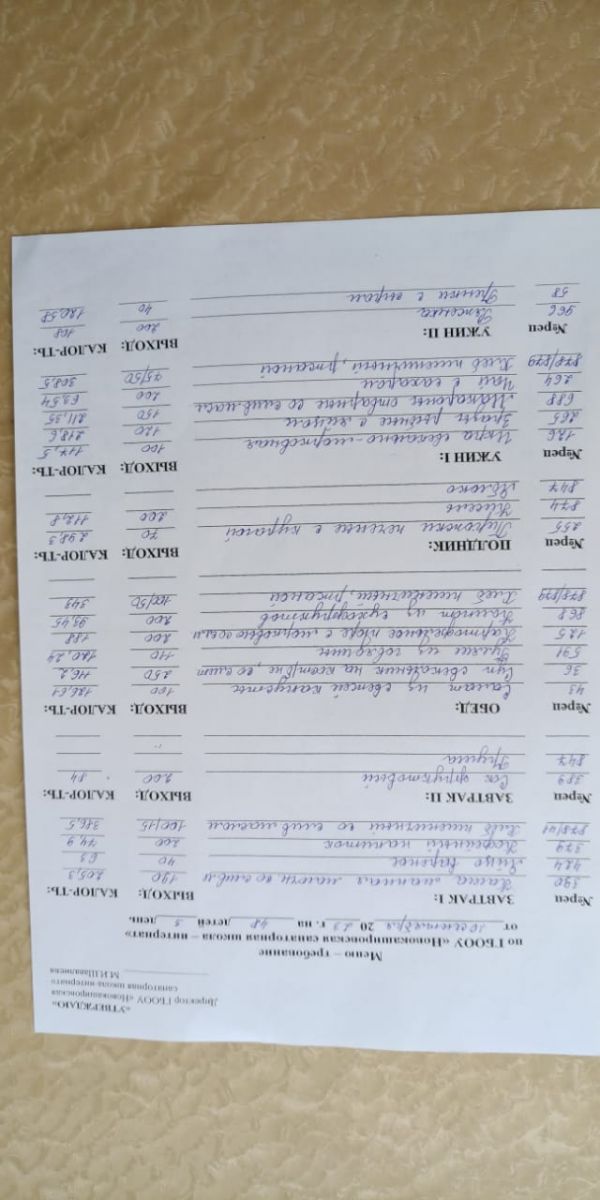 «УТВЕРЖДАЮ»
Директор ГБООУ «Новокашировская
санаторная школа-интернат»
М.И.Шавалиева
Меню – требование
по ГБООУ «Новокашировская санаторная школа – интернат»
от 30 сентября 20 23 г. на 48 детей 5 день.
№рец ЗАВТРАК I: ВЫХОД: КАЛОР-ТЬ:
390 Каша манная молочн. со слив.м 190 205,3
424 Яйцо вареное 40 63
379 Кофейный напиток 200 74,9
878/41 Хлеб пшеничный со слив.маслом 100/15 376,5
№рец ЗАВТРАК II: ВЫХОД: КАЛОР-ТЬ:
389 Сок фруктовый 200 84
847 Груша
№рец ОБЕД: ВЫХОД: КАЛОР-ТЬ:
43 Салат из свежей капусты 100 126,61
36 Суп свекольник на со смет 250 116,2
591 Гуляш из говядины 110 180,24
125 Картофельное пюре с 200 188
868 Компот из сухофруктов 200 95,45
878/879 Хлеб пшеничный, ржаной 100/50 343
№рец ПОЛДНИК: ВЫХОД: КАЛОР-ТЬ:
255 Пирожки печеные с курагой 70 298,3
874 Кисель 200 112,8
847 Яблоко
№рец УЖИН I: ВЫХОД: КАЛОР-ТЬ:
126 Икра свекольно-морковная 100 117,5
265 Зразы рыбные с яйцом 120 218,6
688 Макароны отварные со слив.масл 150 211,35
264 Чай с сахаром 200 63,54
878/879 Хлеб пшеничный, ржаной 75/50 308,5
№рец УЖИН II: ВЫХОД: КАЛОР-ТЬ:
966 Ряженка 200 108
58 Гренки с сыром 40 120,58